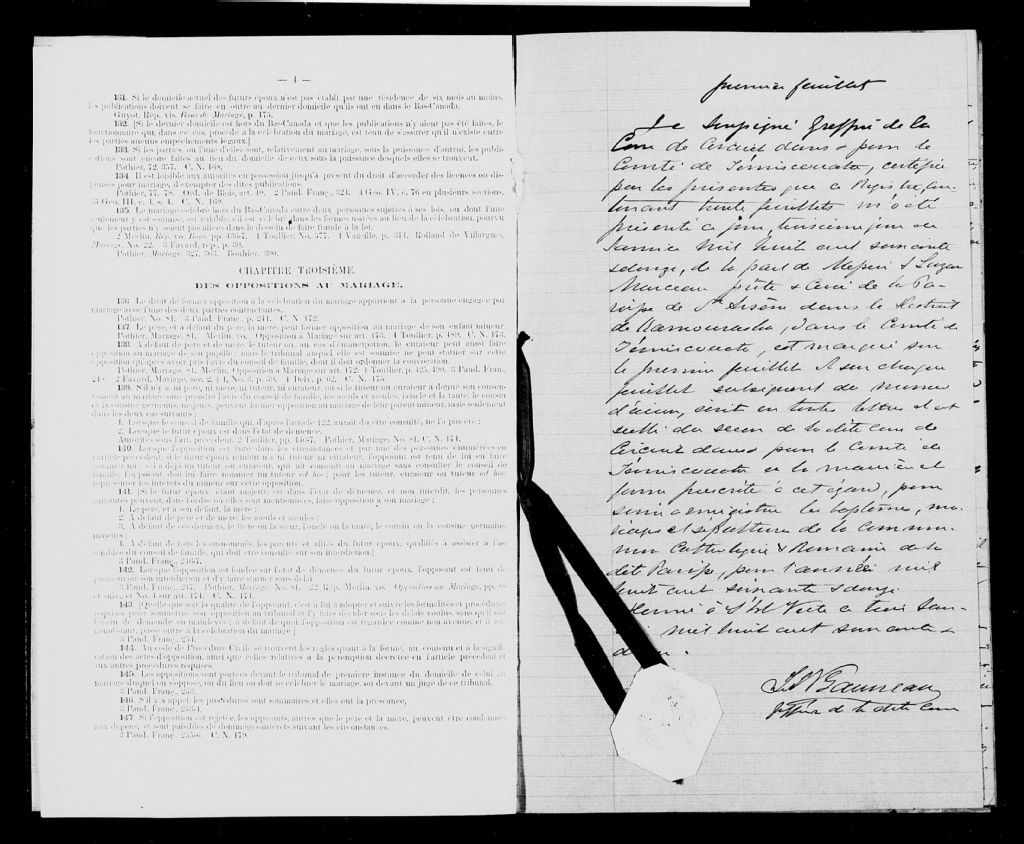 — 4 —
131. Si le domicile actuel des futurs époux n'est pas établi par une résidence de six mois au moins,
les publications doivent se faire en outre au dernier domicile qu'ils ont eu dans le Bas-Canada.
Guyot, Rép. vis. Bans de Mariage, p. 175.
132. [Si le dernier domicile est hors du Bas-Canada et que les publications n'y aient pas été faites, le
fonctionnaire qui, dans ce cas, procède à la célébration du mariage, est tenu de s'assurer qu'il n'existe entre
les parties aucuns empêchements légaux.]
133. Si les parties, ou l'une d'elles sont, relativement au mariage, sous la puissance d'autrui, les publi-
cations sont encore faites au lieu du domicile de ceux sous la puissance desquels elles se trouvent.
Pothier, 72, 357. C. N. 168.
134. Il est loisible aux autorités en possession jusqu'à présent du droit d'accorder des licences ou dis-
penses pour mariage, d'exempter des dites publications.
Pothier, 77, 78. Ord. de Blois, art. 40. 2 Pand. Franç., 324. 4 Geo. IV, c. 76 en plusieurs sections,
35 Geo. III, c. 4, s. 4. C. N. 169.
135. Le mariage célébré hors du Bas-Canada entre deux personnes sujettes à ses lois, ou dont l'une
seulement y est soumise, est valable, s'il est célébré dans les formes usitées au lieu de la célébration, pourvu
que les parties n'y soient pas allées dans le dessein de faire fraude à la loi.
2 Merlin, Rép. vo. Bans, pp. 4. Toullier, No. 577. 1 Vazeille, p. 314. Rolland de Villargues,
Mariage, No. 22. 3 Favard, rép., p. 59.
Pothier, Mariage, 327, 363. Bouhier, 390.
CHAPITRE TROISIÈME.
DES OPPOSITIONS AU MARIAGE.
136. Le droit de former opposition à la célébration du mariage appartient à la personne engagée par
mariage avec l'une des deux parties contractantes.
Pothier, No. 81. 3 Pand. Franç., p. 241. C. N. 172.
137. Le père, et à défaut du père, la mère, peut former opposition au mariage de son enfant mineur.
Pothier, Mariage, 81. Merlin, vo. Opposition à Mariage sur art. 173. 1 Toullier, p. 489. C. N. 173.
138. A défaut de père et de mère, le tuteur, ou, au cas d'émancipation, le curateur peut aussi faire
opposition au mariage de son pupille ; mais le tribunal auquel elle est soumise ne peut statuer sur cette
opposition qu'après avoir pris l'avis du conseil de famille, dont il doit ordonner la convocation.
Pothier, Mariage, 81. Merlin, Opposition à Mariage sur art. 172. 1 Toullier, p. 425, 490. 3 Pand. Franç.
2 Favard, Mariage, sec. 2, § 1, No. 3, p. 59. 1 Delv., p. 62. C. N. 175.
139. S'il n'y a ni père, ni mère, ni tuteur, ni curateur, ou si le tuteur ou curateur a donné son consen-
tement au mariage sans prendre l'avis du conseil de famille, les aïeuls et aïeules, l'oncle et la tante, le cousin
et la cousine germains, majeurs, peuvent former opposition au mariage de leur parent mineur, mais seulement
dans les deux cas suivants :
1. Lorsque le conseil de famille qui, d'après l'article 122, aurait dû être consulté, ne l'a pas été ;
2. Lorsque le futur époux est dans l'état de démence.
Autorités sous l'art. précédent. 2 Toullier, pp. Pothier, Mariage, No. 81. C. N. 174.
140. Lorsque l'opposition est faite dans les circonstances et par une des personnes énumérées en
l'article précédent, si le mineur n'a ni tuteur, ni curateur, l'opposant est tenu de lui en faire
nommer un ; s'il a déjà un tuteur ou curateur, qui ait consenti au mariage sans consulter le conseil de
famille, l'opposant doit lui faire nommer un tuteur ad hoc ; pour les tuteur, curateur ou tuteur ad hoc,
représenter les intérêts du mineur sur cette opposition.
141. [Si le futur époux, étant majeur, est dans l'état de démence, et non interdit, les personnes
suivantes peuvent, dans l'ordre où elles sont mentionnées, faire opposition à son mariage :
1. Le père, et à son défaut, la mère ;
2. A défaut de père et de mère, les aïeuls et aïeules ;
3. A défaut de ces derniers, le frère ou la sœur, l'oncle ou la tante, le cousin ou la cousine germains,
majeurs ;
4. A défaut de tous les susnommés, les parents et alliés du futur époux, qualifiés à assister à l'as-
semblée du conseil de famille, qui doit être consulté sur son interdiction.]
142. Lorsque l'opposition est fondée sur l'état de démence du futur époux, l'opposant est tenu de
promouvoir son interdiction et d'y faire statuer sans délai.
3 Pand. Franç. 247. Pothier, Mariage, No. 81. 22 Rép. Merlin, vo. Opposition au Mariage, pp.
et suiv., et No. 4 sur art. 174. C. N. 174.
143. [Quelle que soit la qualité de l'opposant, c'est à lui à adopter et suivre les formalités et procédures
requises pour soumettre son opposition au tribunal et l'y faire décider sous les délais voulus, sans qu'il soit
besoin de demande en mainlevée ; à défaut de quoi, l'opposition est regardée comme non avenue, et il est,
nonobstant, passé outre à la célébration du mariage.]
3 Pand. Franç., 251.
144. Au Code de Procédure Civile se trouvent les règles quant à la forme, au contenu et à la signifi-
cation des actes d'opposition, ainsi que celles relatives à la péremption décrétée en l'article précédent et
aux autres procédures requises.
145. Les oppositions sont portées devant le tribunal de première instance du domicile de celui au
mariage duquel on s'oppose, ou du lieu où doit se célébrer le mariage, ou devant un juge de ce tribunal.
3 Pand. Franç., 253.
146. S'il y a appel, les procédures sont sommaires et elles ont la préséance.
147. Si l'opposition est rejetée, les opposants, autres que le père et la mère, peuvent être condamnés
aux dépens, et sont passibles de dommages-intérêts suivant les circonstances.
3 Pand. Franç., C. N. 179.
premier feuillet
Le Soussigné Greffier de la
Cour de Circuit dans & pour le
Comté de Témiscouata, certifie
par les présentes que ce Registre con-
tenant trente feuillets m'a été
présenté ce jour, troisième jour de
Janvier Mil huit cent soixante
& douze, de la part de Messire
Marceau prêtre & Curé de la Pa-
roisse de St Arsène dans le District
de Kamouraska, dans le Comté de
Témiscouata, est marqué sur
le premier feuillet & sur chaque
feuillet subséquent du numéro
d'icelui, écrit en toutes lettres et est
scellé du sceau de la dite Cour de
Circuit dans & pour le Comté de
Témiscouata en la manière et
forme prescrite à cet égard, pour
servir à enregistrer les baptêmes, ma-
riages et sépultures de la Commu-
nion Catholique & Romaine de la
dite Paroisse, pour l'année mil
huit cent soixante & douze
Donné à L'Isle Verte ce trois Jan-
vier mil huit cent soixante &
douze.
Gauvreau
Greffier de la dite Cour